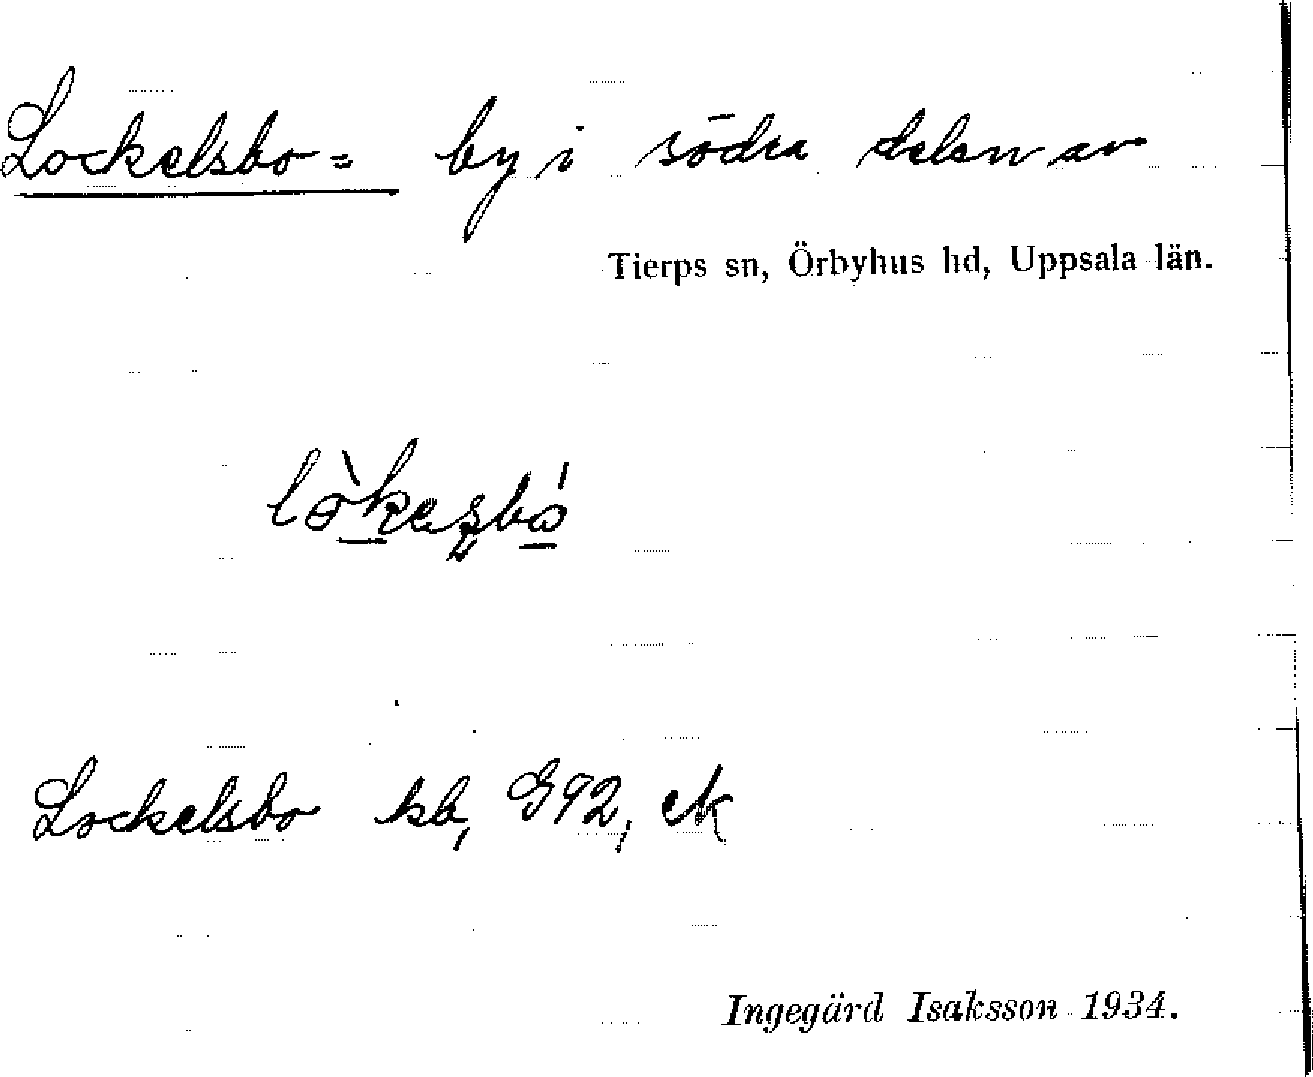 Lockelsbo = by i södra delen av
Tierps sn, Örbyhus hd, Uppsala län.
Lockelsbo kb, G92, ek
Ingegärd Isaksson 1934.